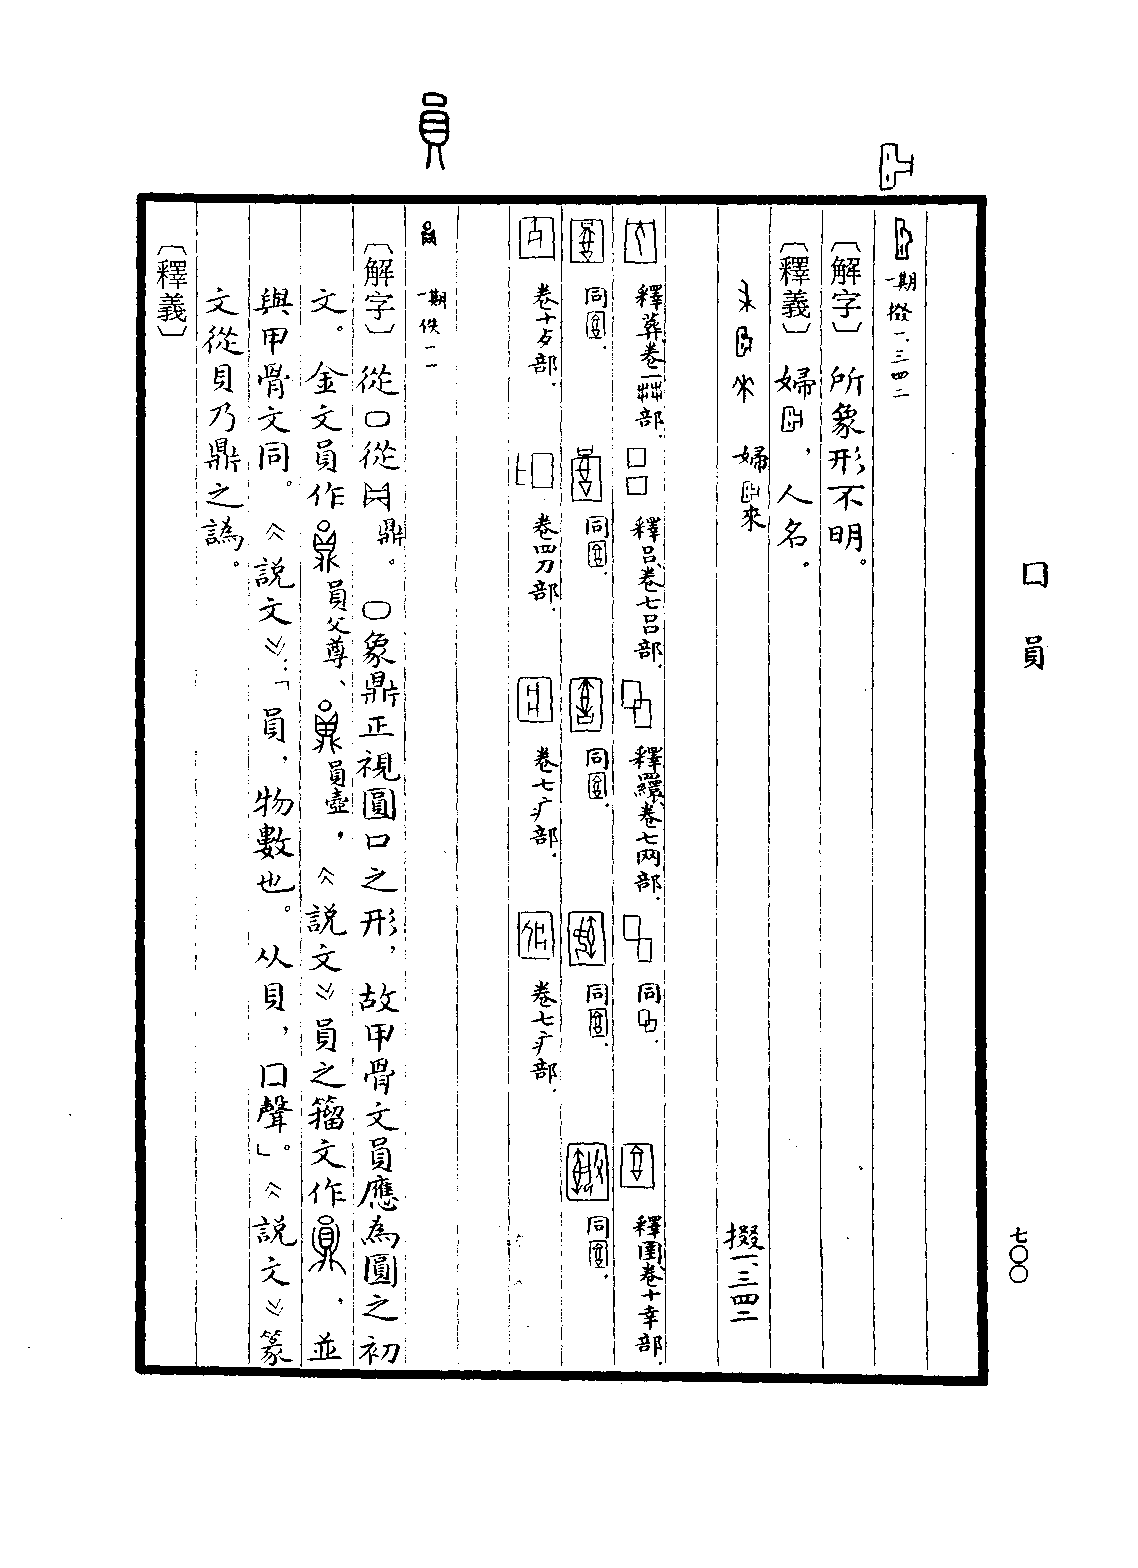 口 員
七〇〇
一期 掇一.三四二
〔解字〕所象形不明。
〔釋義〕婦，人名．
婦來 掇一.三四二
釋葬卷一茻部． 釋呂卷七呂部． 釋羅卷七网部． 同． 釋圉卷十㚔部．
同． 同． 同． 同． 同．
卷十歺部． 卷四刀部． 卷七疒部． 卷七疒部．
員
一期 佚一一
〔解字〕從口從鼎。象鼎正視圓口之形，故甲骨文員應為圓之初
文。金文員作員父尊、員壺，《說文》員之籀文作，並
與甲骨文同。《說文》：「員，物數也。从貝，囗聲」。《說文》篆
文從貝乃鼎之譌。
〔釋義〕